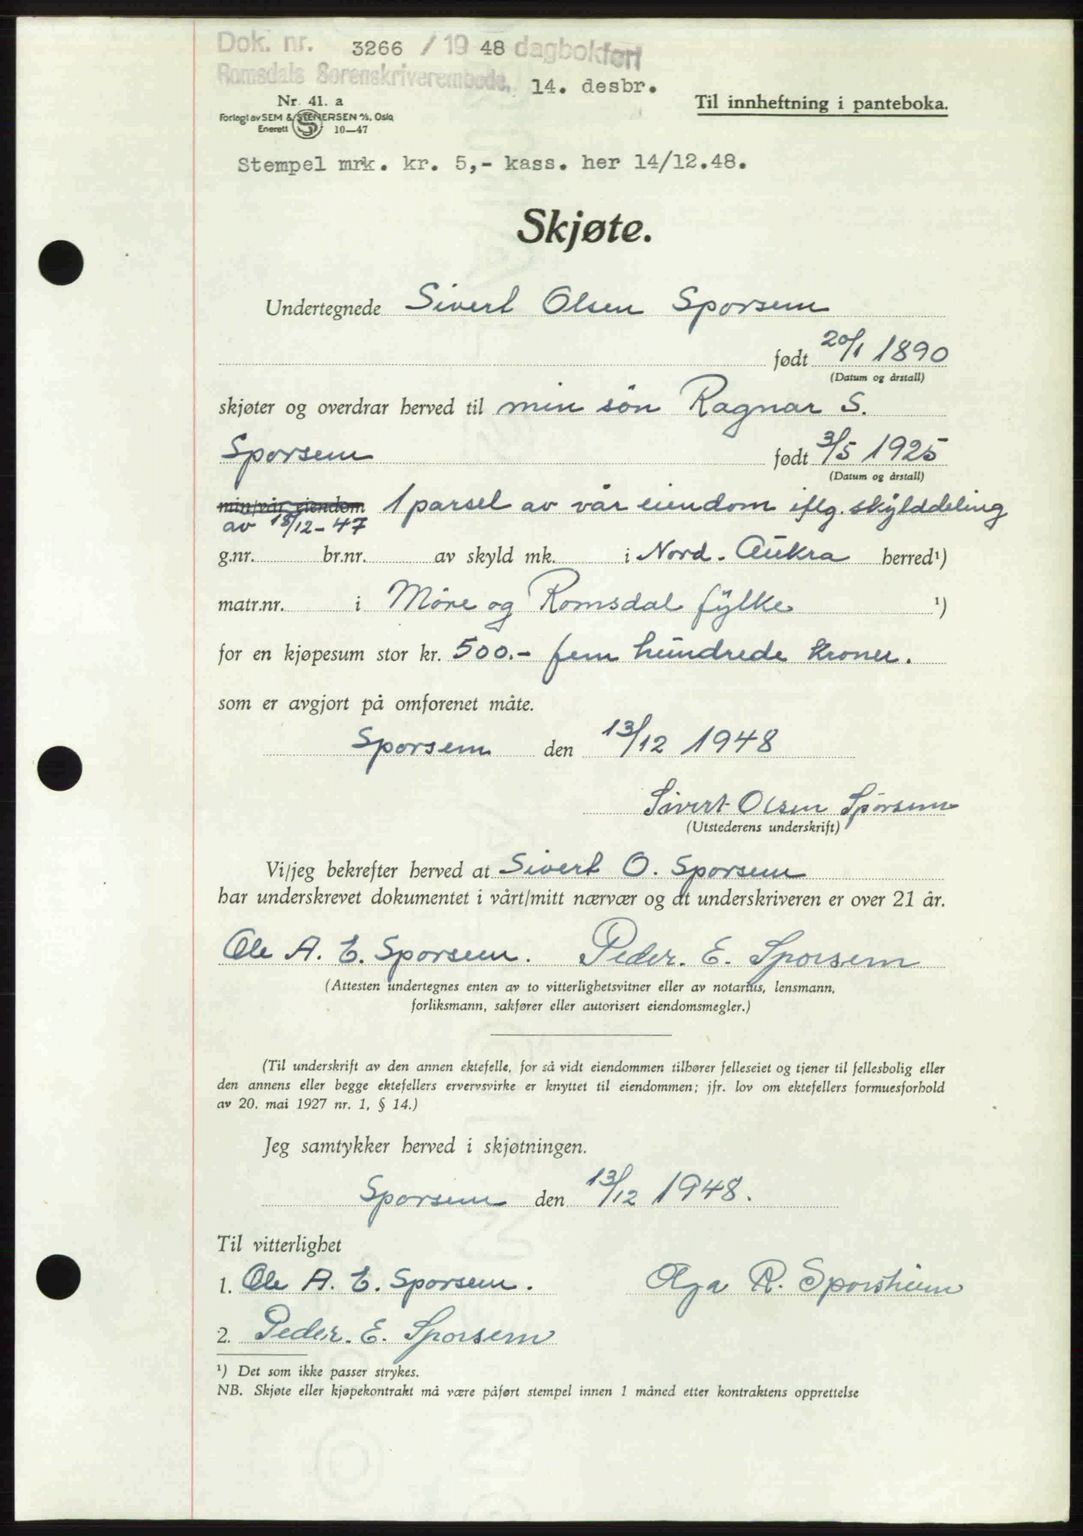 Dok. nr. 3266 / 19 48 dagbokført
Romsdals Sorenskriverembede, 14. desbr.
Nr. 41. a
Forlagt av SEM & STENERSEN A/S, Oslo
Enerett 10—47
Til innheftning i panteboka.
Stempel mrk. kr. 5,- kass. her 14/12.48.
Skjøte.
Undertegnede Sivert Olsen Sporsem
født 20/1 1890
(Datum og årstall)
skjøter og overdrar herved til min sön Ragnar S.
Sporsem født 3/5 1925
(Datum og årstall)
min/vår eiendom 1 parsel av vår eiendom iflg. skylddeling
av 15/12-47
g.nr. br.nr. av skyld mk. i Nord-Aukra herred¹)
matr.nr. i Møre og Romsdal fylke ¹)
for en kjøpesum stor kr. 500.- fem hundrede kroner.
som er avgjort på omforenet måte.
Sporsem den 13/12 1948
Sivert Olsen Sporsem
(Utstederens underskrift)
Vi/jeg bekrefter herved at Sivert O. Sporsem
har underskrevet dokumentet i vårt/mitt nærvær og at underskriveren er over 21 år.
Ole A. E. Sporsem. Peder. E. Sporsem
(Attesten undertegnes enten av to vitterlighetsvitner eller av notarius, lensmann,
forliksmann, sakfører eller autorisert eiendomsmegler.)
(Til underskrift av den annen ektefelle, for så vidt eiendommen tilhører felleseiet og tjener til fellesbolig eller
den annens eller begge ektefellers ervervsvirke er knyttet til eiendommen; jfr. lov om ektefellers formuesforhold
av 20. mai 1927 nr. 1, § 14.)
Jeg samtykker herved i skjøtningen.
Sporsem den 13/12 1948.
Til vitterlighet
1. Ole A. E. Sporsem. Olga R. Sporsheim
2. Peder. E. Sporsem
¹) Det som ikke passer strykes.
NB. Skjøte eller kjøpekontrakt må være påført stempel innen 1 måned etter kontraktens opprettelse